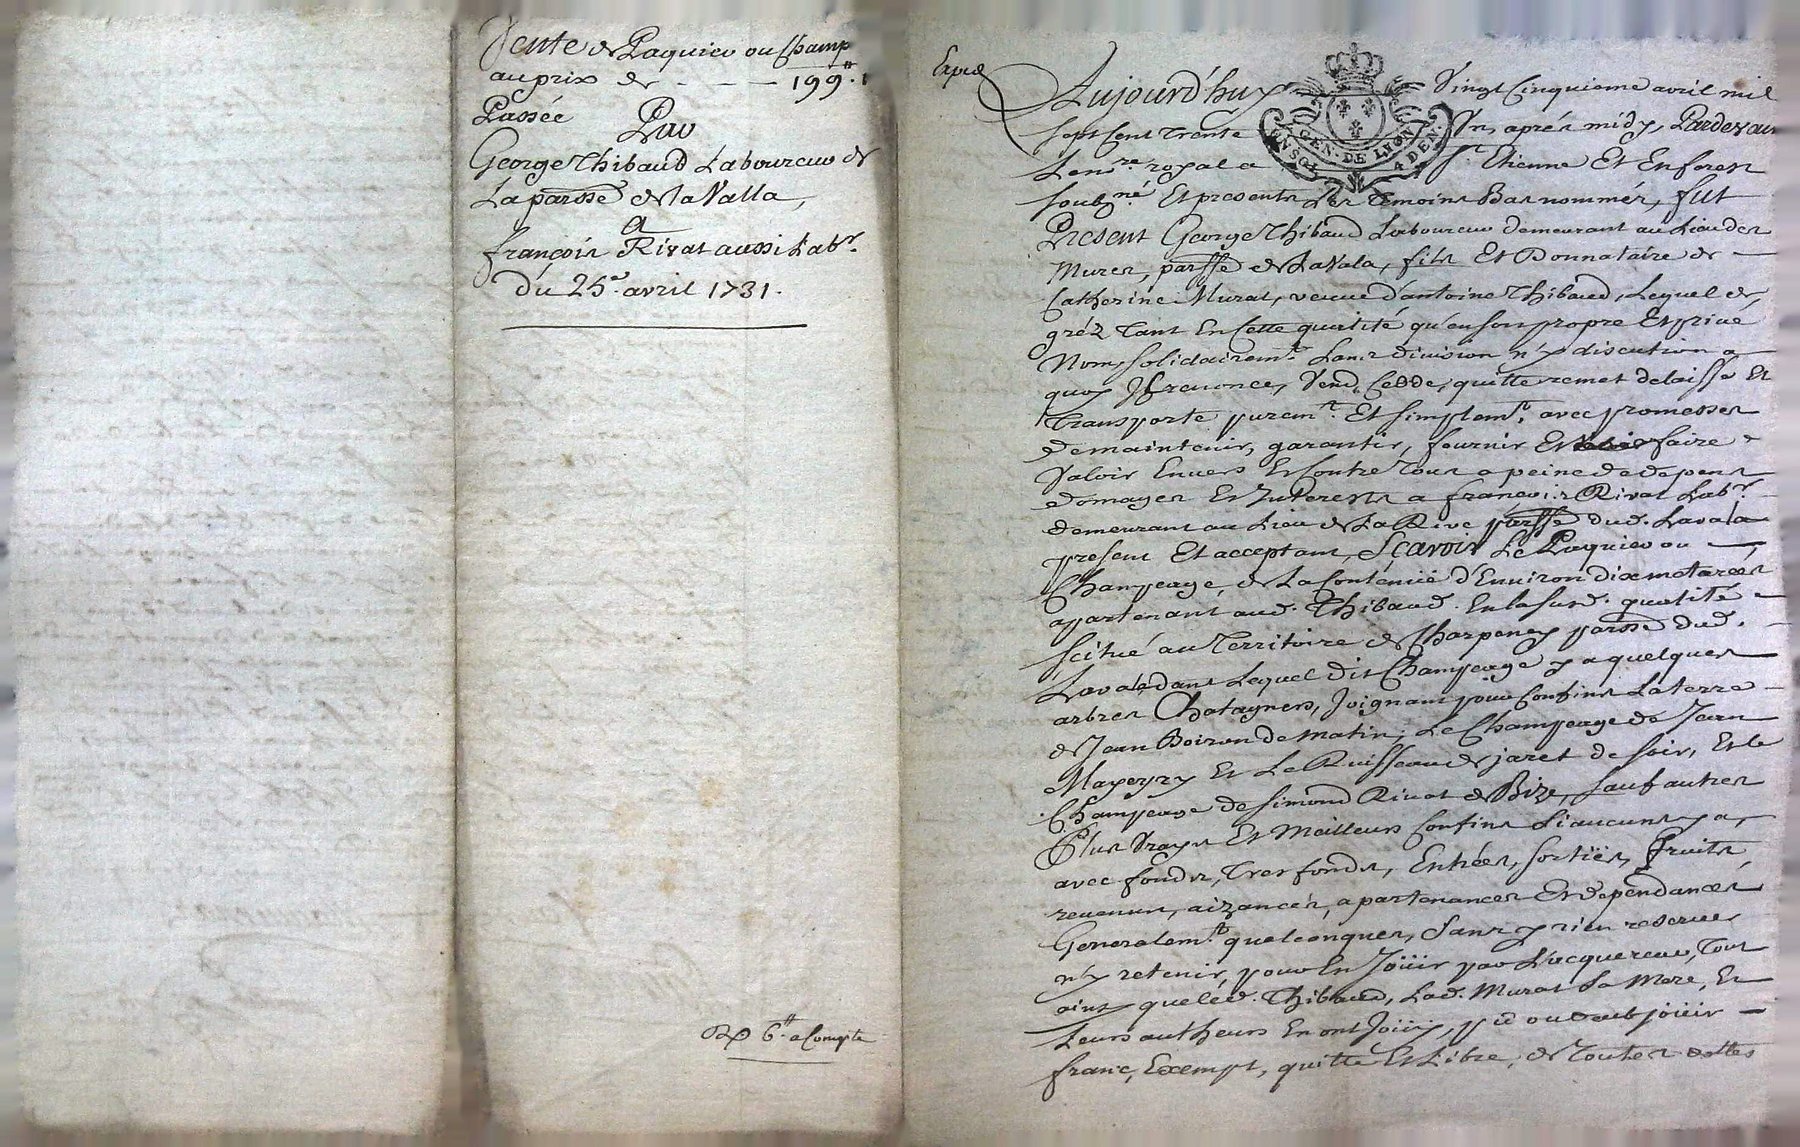 Vente de Paquier ou Champ
au prix de - - - 199.tt
Passée Par
George Thibaud Laboureur de
La parsse de la Valla,
a
françois Rivat aussi Labr.
du 25e. avril 1731.
6tt a Compte
Exped
Aujourd'huy Vingt Cinquieme avril mil
sept Cent Trente Un, aprés midy, Pardevant
Le nre royal a St Etienne Et En forest
soubsné Et presents Les Temoins Bas nommés, fut
Present George Thibaud Laboureur demeurant au Lieu des
Mures, parsse de La Vala, fils Et Donnataire de
Catherine Murat, veuve d'antoine Thibaud, Lequel de
gréz Tant En Cette qualité qu'en son propre Et privé
Nom, solidairemt. sans division n'y discution a
quoy Il renonce, Vend, Cedde, quitte remet delaisse Et
Transporte puremt. Et simplemt. avec promesses
de maintenir, garantir, fournir Et faire
Valoir Envers Et Contre Tous a peine de depens
domages Et Interests a françois Rivat Labr.
demeurant au Lieu de La Rive parsse dud. Lavala
present Et acceptant, Scavoir Le Paquier ou
Champeage, de La Contenüe d'Environ dix metarées
apartenant aud. Thibaud. En la susd. qualité
scitué au Territoire de Charpeney parsse dud.
Lavala, dans Lequel dit Champeage y a quelques
arbres Chatagners, Joignant pour Confins La terre
de Jean Boiron de matin, Le Champeage de Jean
Mayeyry Et Le Ruisseau de jaret de soir, Et le
Champeage de simond Rivat de Bize, sauf autres
Plus Vrays Et Meilleurs Confins si aucuns y a,
avec fonds, Tres fonds, Entrées, sortiës, fruits
revenus, aizances, apartenances Et dependances
Generalemt. quelconques, Sans y rien reserver
n'y retenir, pour En Joüir par L'acquereur, Tout
ainsy que led. Thibaud, Lad. Murat sa Mere, Et
Leurs autheurs En ont Joüy, pû ou dub joüir
franc, Exempt, quitte Et Libre, de Toutes dettes